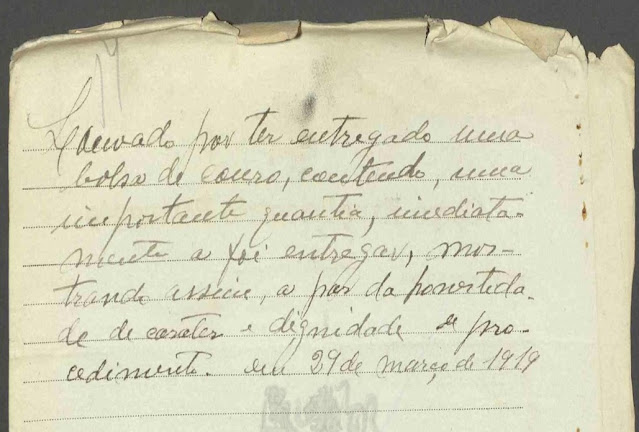 Louvado por ter entregado uma
bolsa de couro, contendo, uma
importante quantia, imediata-
mente a foi entregar, mos-
trando assim, a par da honestida-
de de carater e dignidade de pro-
cedimento. em 29 de março de 1919